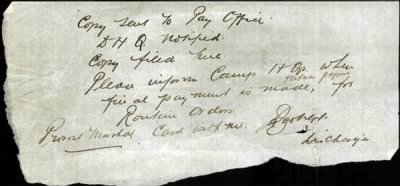 Copy sent to Pay Office
D H Q notified.
Copy filed here.
Please inform Camp H Qrs when
final payment is made, for
Routine Orders
Provost Marshal Cash with me.